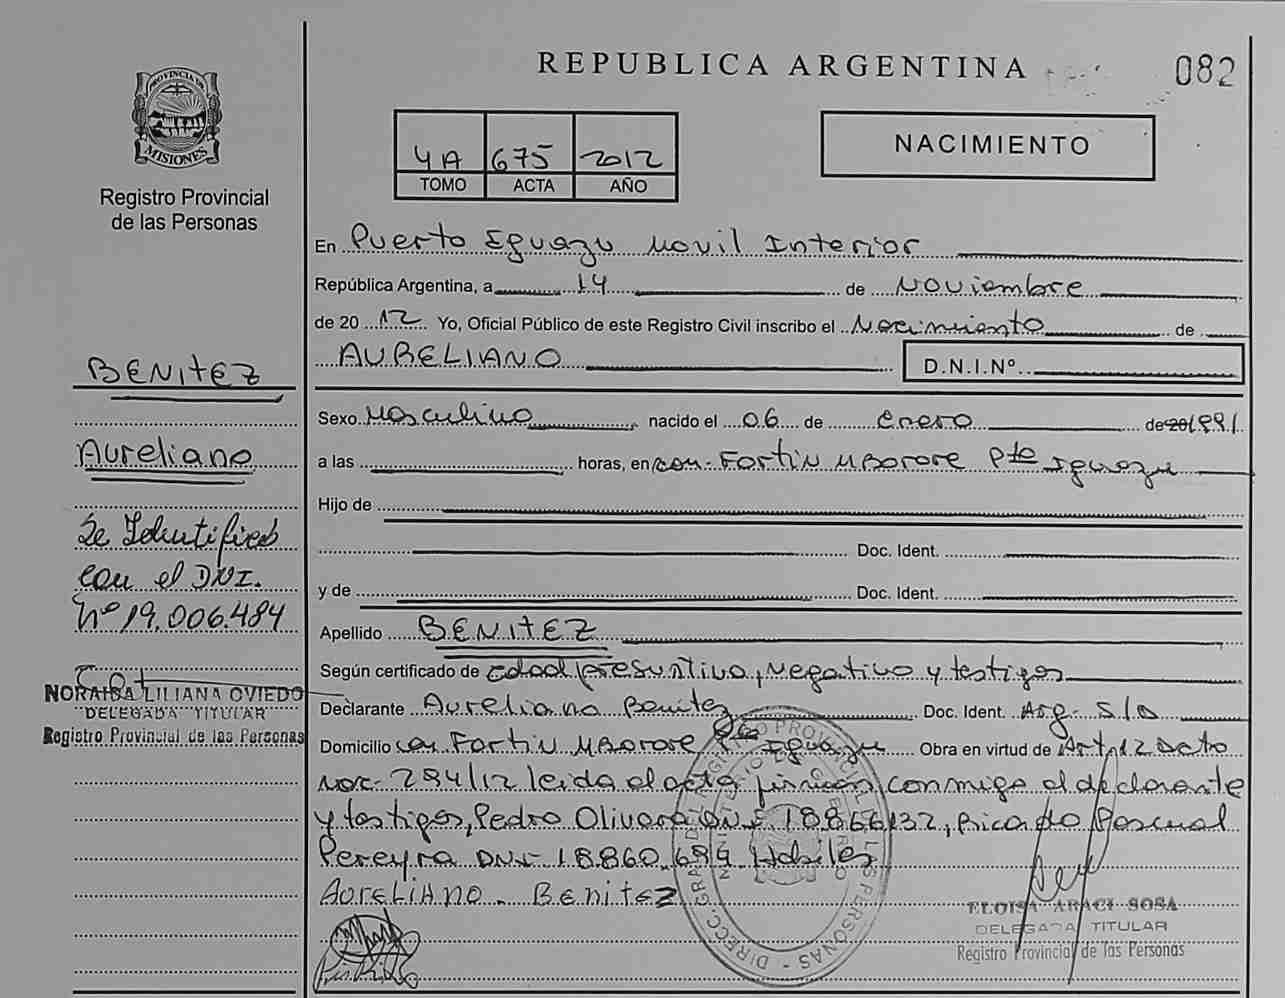 REPUBLICA ARGENTINA
082
PROVINCIA DE
MISIONES
Registro Provincial
de las Personas
4A 675 2012
TOMO ACTA AÑO
NACIMIENTO
En Puerto Iguazu Movil Interior
República Argentina, a 14 de Noviembre
de 2012 Yo, Oficial Público de este Registro Civil inscribo el Nacimiento de
AURELIANO D.N.I.Nº
Sexo Masculino nacido el 06 de Enero de 20 1991
a las horas, en com. Fortin Mborore Pto Iguazu
Hijo de
Doc. Ident.
y de Doc. Ident.
Apellido BENITEZ
Según certificado de edad presuntiva, negativo y testigos
Declarante Aureliano Benitez Doc. Ident. Arg. S/D
Domicilio com Fortin Mborore Pto Iguazu Obra en virtud de Art. 12 Dcto
Nac. 294/12 leida el acta firman conmigo el declarante
y testigos, Pedro Olivera DNI 18866132, Ricardo Pascual
Pereyra DNI 18.860.689 Habiles
AURELIANO - BENITEZ
ELOISA ARACI SOSA
DELEGADA TITULAR
Registro Provincial de las Personas
BENITEZ
Aureliano
Se Identificó
con el DNI.
Nº 19.006.484
NORAIBA LILIANA OVIEDO
DELEGADA TITULAR
Registro Provincial de las Personas